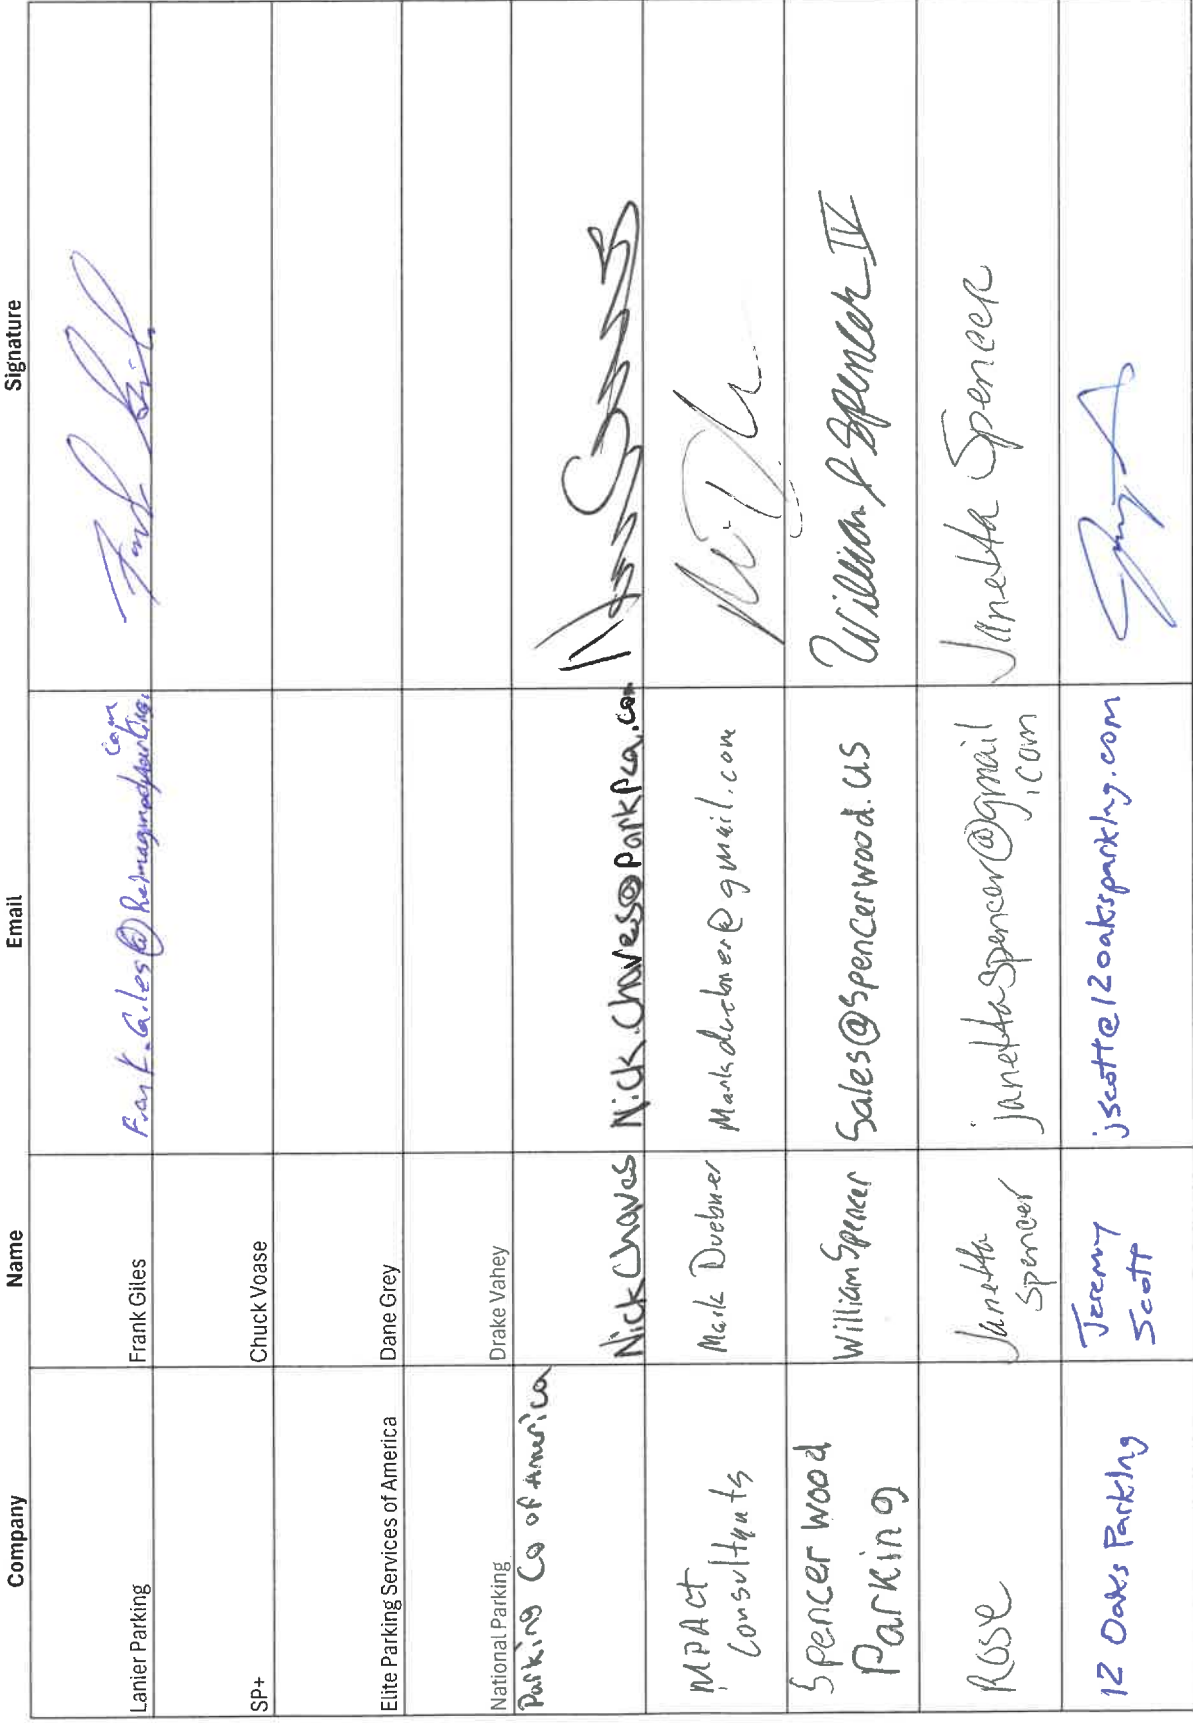 Company Name Email Signature
Lanier Parking Frank Giles Frank.Giles@Reimaginedparking.
com
SP+ Chuck Voase
Elite Parking Services of America Dane Grey
National Parking Drake Vahey
Parking Co of America Nick Chaves Nick.Chaves@parkpca.com
MPACT Mark Duebner markduebner@gmail.com
Consultants
Spencer wood William Spencer Sales@spencerwood.us William J Spencer IV
Parking
Rose Janetta janettaspencer@gmail Janetta Spencer
Spencer .com
12 Oaks Parking Jeremy jscott@12oaksparking.com
Scott